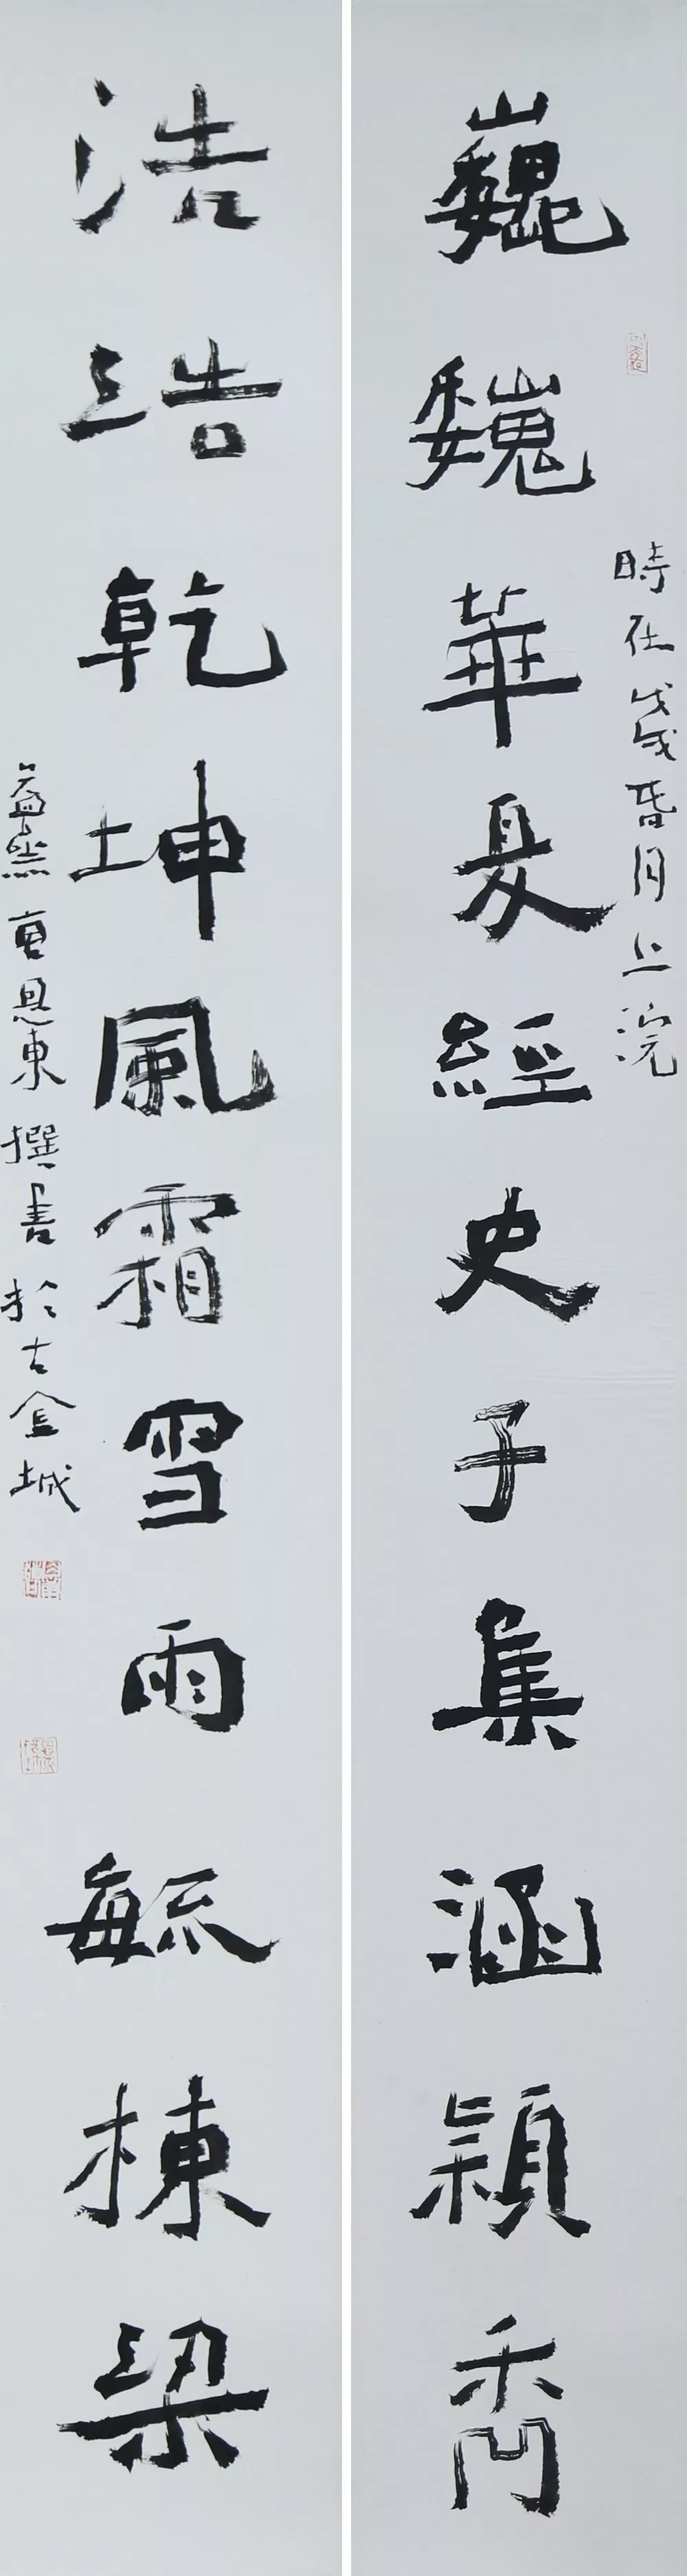 時在戊戌春月上浣
巍巍華夏經史子集涵穎秀
浩浩乾坤風霜雪雨毓棟梁
益燕 曹恩東撰書於古金城